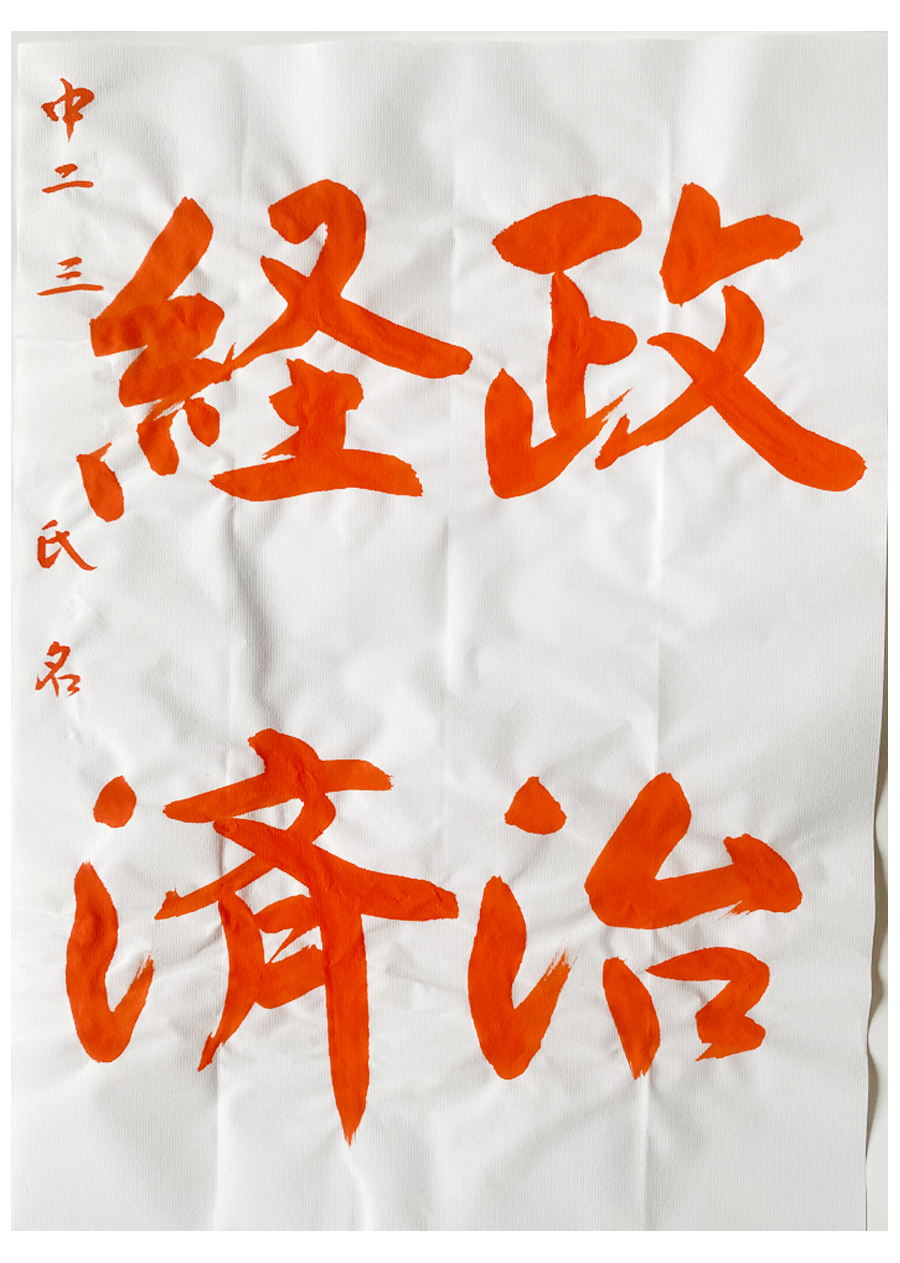 政治
経済
中二三氏名